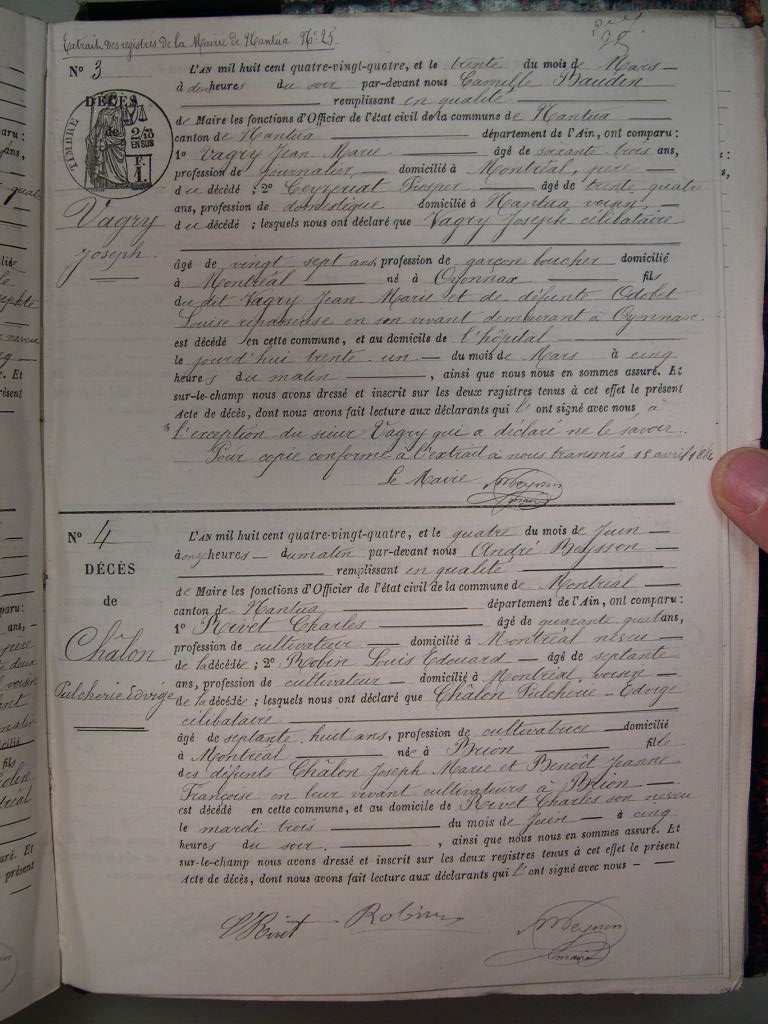 Extrait des registres de la Mairie de Nantua N° 25
N° 3
L'AN mil huit cent quatre-vingt-quatre, et le trente du mois de Mars
à deux heures du soir par-devant nous Camille Baudin
remplissant en qualité
de Maire les fonctions d'Officier de l'état civil de la commune de Nantua
canton de Nantua département de l'Ain, ont comparu :
1° Vagry Jean Marie âgé de soixante trois ans,
profession de journalier domicilié à Montréal, père
du décédé ; 2° Ceyzeriat Prosper âgé de trente quatre
ans, profession de domestique domicilié à Nantua voisin
du décédé ; lesquels nous ont déclaré que Vagry Joseph célibataire
âgé de vingt sept ans, profession de garçon boucher domicilié
à Montréal né à Oyonnax fils
du dit Vagry Jean Marie et de défunte Odobet
Louise repasseuse en son vivant demeurant à Oyonnax
est décédé en cette commune, et au domicile de l'hôpital
le jourd'hui trente un du mois de Mars à cinq
heures du matin, ainsi que nous nous en sommes assuré. Et
sur-le-champ nous avons dressé et inscrit sur les deux registres tenus à cet effet le présent
Acte de décès, dont nous avons fait lecture aux déclarants qui l' ont signé avec nous, à
l'exception du sieur Vagry qui a déclaré ne le savoir.
Pour copie conforme à l'extrait à nous transmis 18 avril 1884
Le Maire
DÉCÈS
de
TIMBRE
2/10
EN SUS
Vagry
Joseph
N° 4
DÉCÈS
de
Châlon
Pulcherie Edvige
L'AN mil huit cent quatre-vingt-quatre, et le quatre du mois de Juin
à onze heures du matin par-devant nous André Beyssen
remplissant en qualité
de Maire les fonctions d'Officier de l'état civil de la commune de Montréal
canton de Nantua département de l'Ain, ont comparu :
1° Rivet Charles âgé de quarante quatre ans,
profession de cultivateur domicilié à Montréal neveu
de la décédée ; 2° Robin Louis Edouard âgé de septante
ans, profession de cultivateur domicilié à Montréal, voisin
de la décédée ; lesquels nous ont déclaré que Châlon Pulcherie-Edvige
célibataire
âgé de septante huit ans, profession de cultivatrice domicilié
à Montréal née à Brion fille
des défunts Châlon Joseph Marie et Benoît Jeanne
Françoise en leur vivant cultivateurs à Brion
est décédé en cette commune, et au domicile de Rivet Charles son neveu
le mardi trois du mois de Juin à cinq
heures du soir, ainsi que nous nous en sommes assuré. Et
sur-le-champ nous avons dressé et inscrit sur les deux registres tenus à cet effet le présent
Acte de décès, dont nous avons fait lecture aux déclarants qui l' ont signé avec nous
Rivet Robin
maire